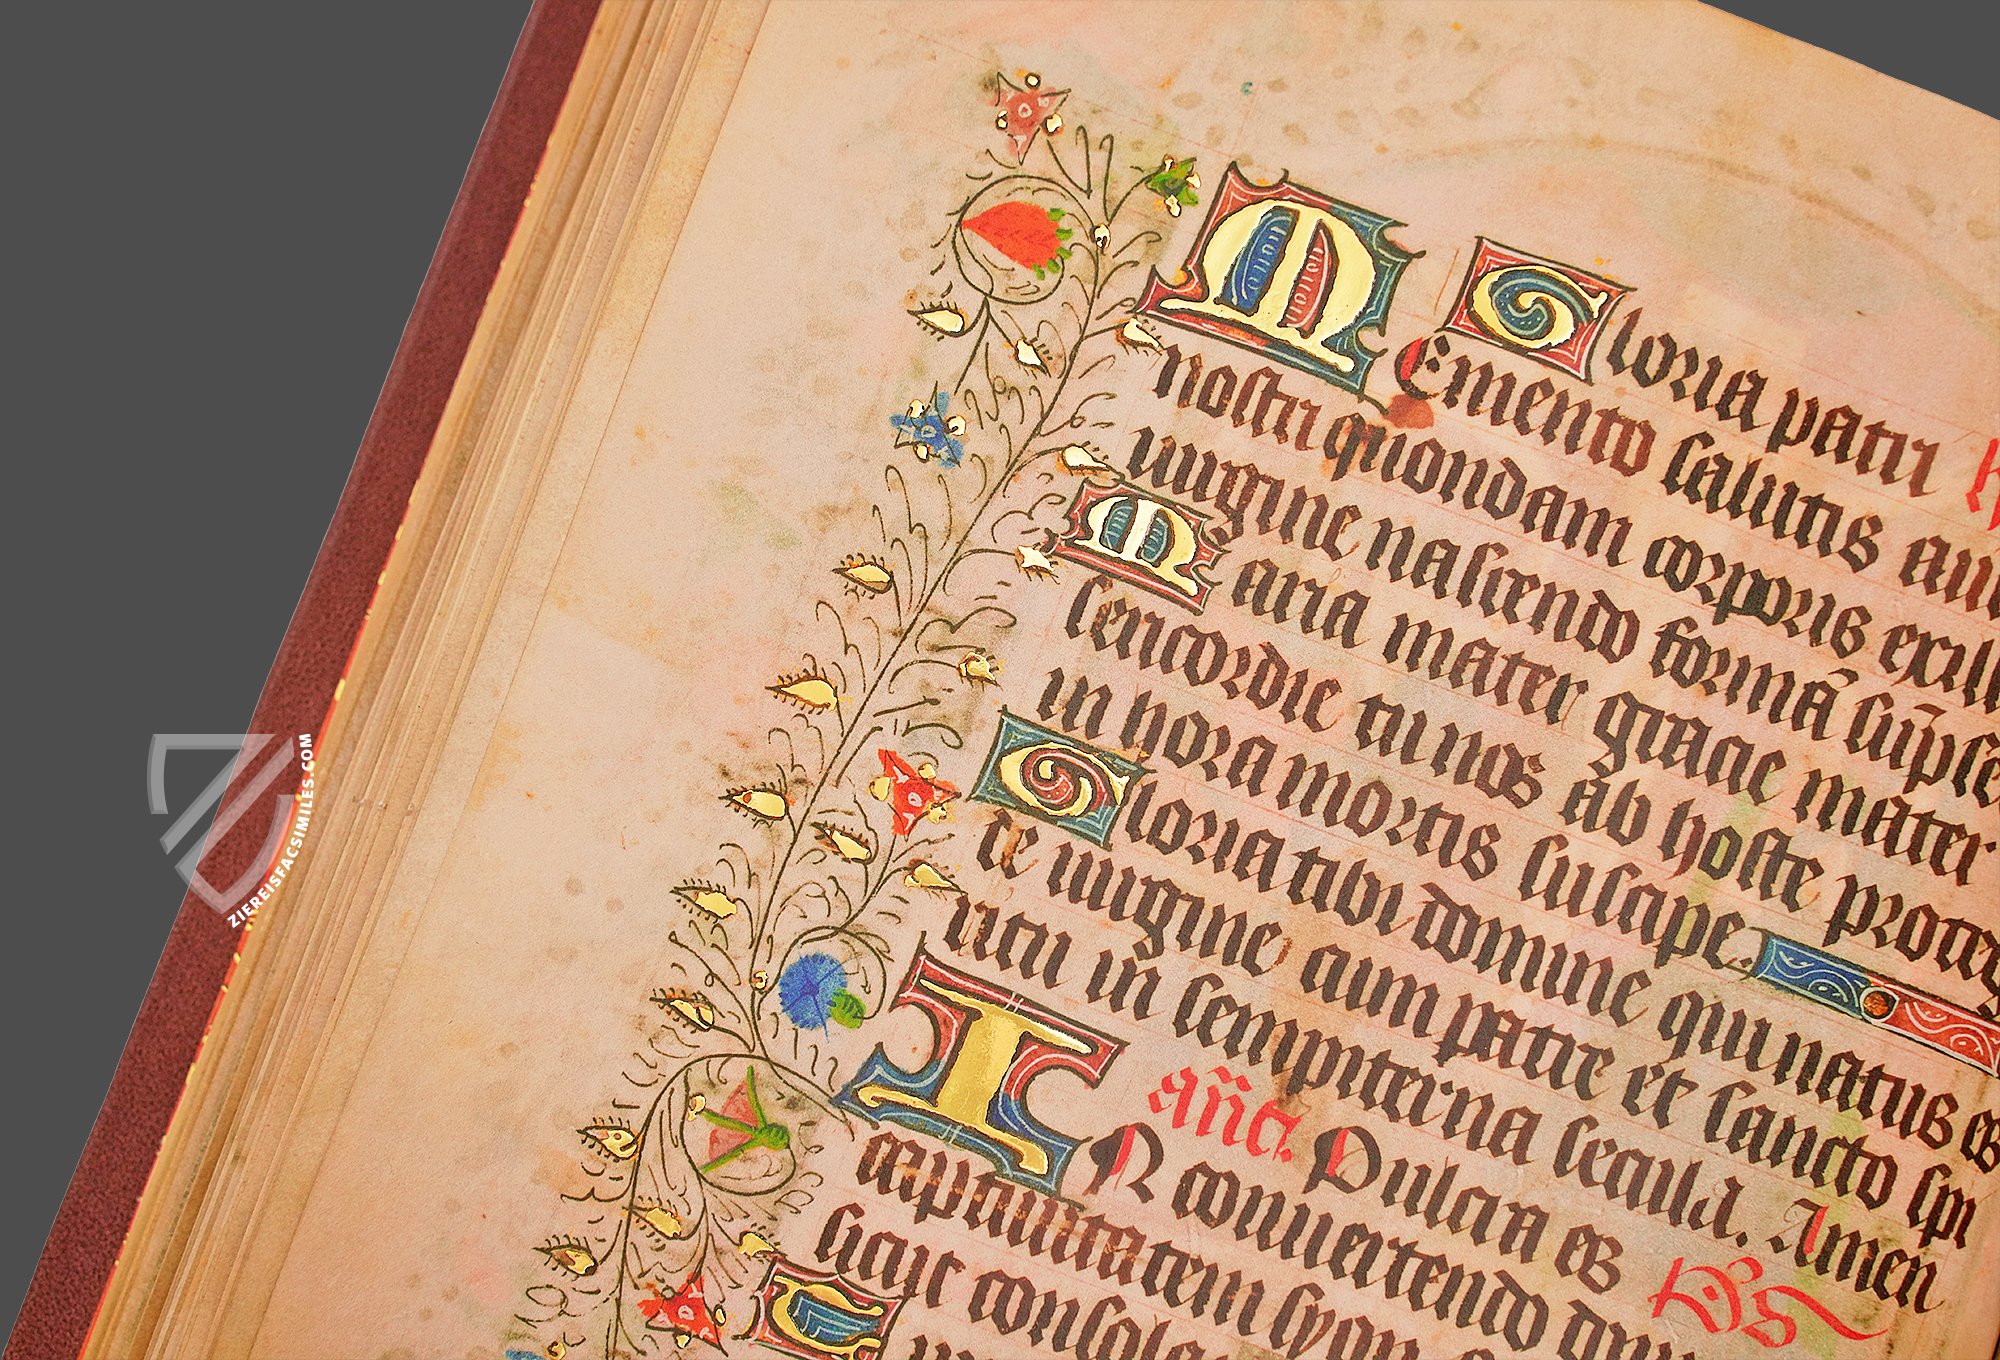 Gloria patri
Memento salutis au
nostri quondam corporis ex illi
uirgine nascendo formā sūpse
Maria mater gracie mater
sericordie tu nos ab hoste proteg
in hora mortis suscipe.
Gloria tibi domine qui natus es
de uirgine cum patre et sancto spi
ritu in sempiterna secula. Amen
añt. Pulcra es ps
IN conuertendo dn̄s
captiuitatem syon
sicut consola
ZIEREISFACSIMILES.COM